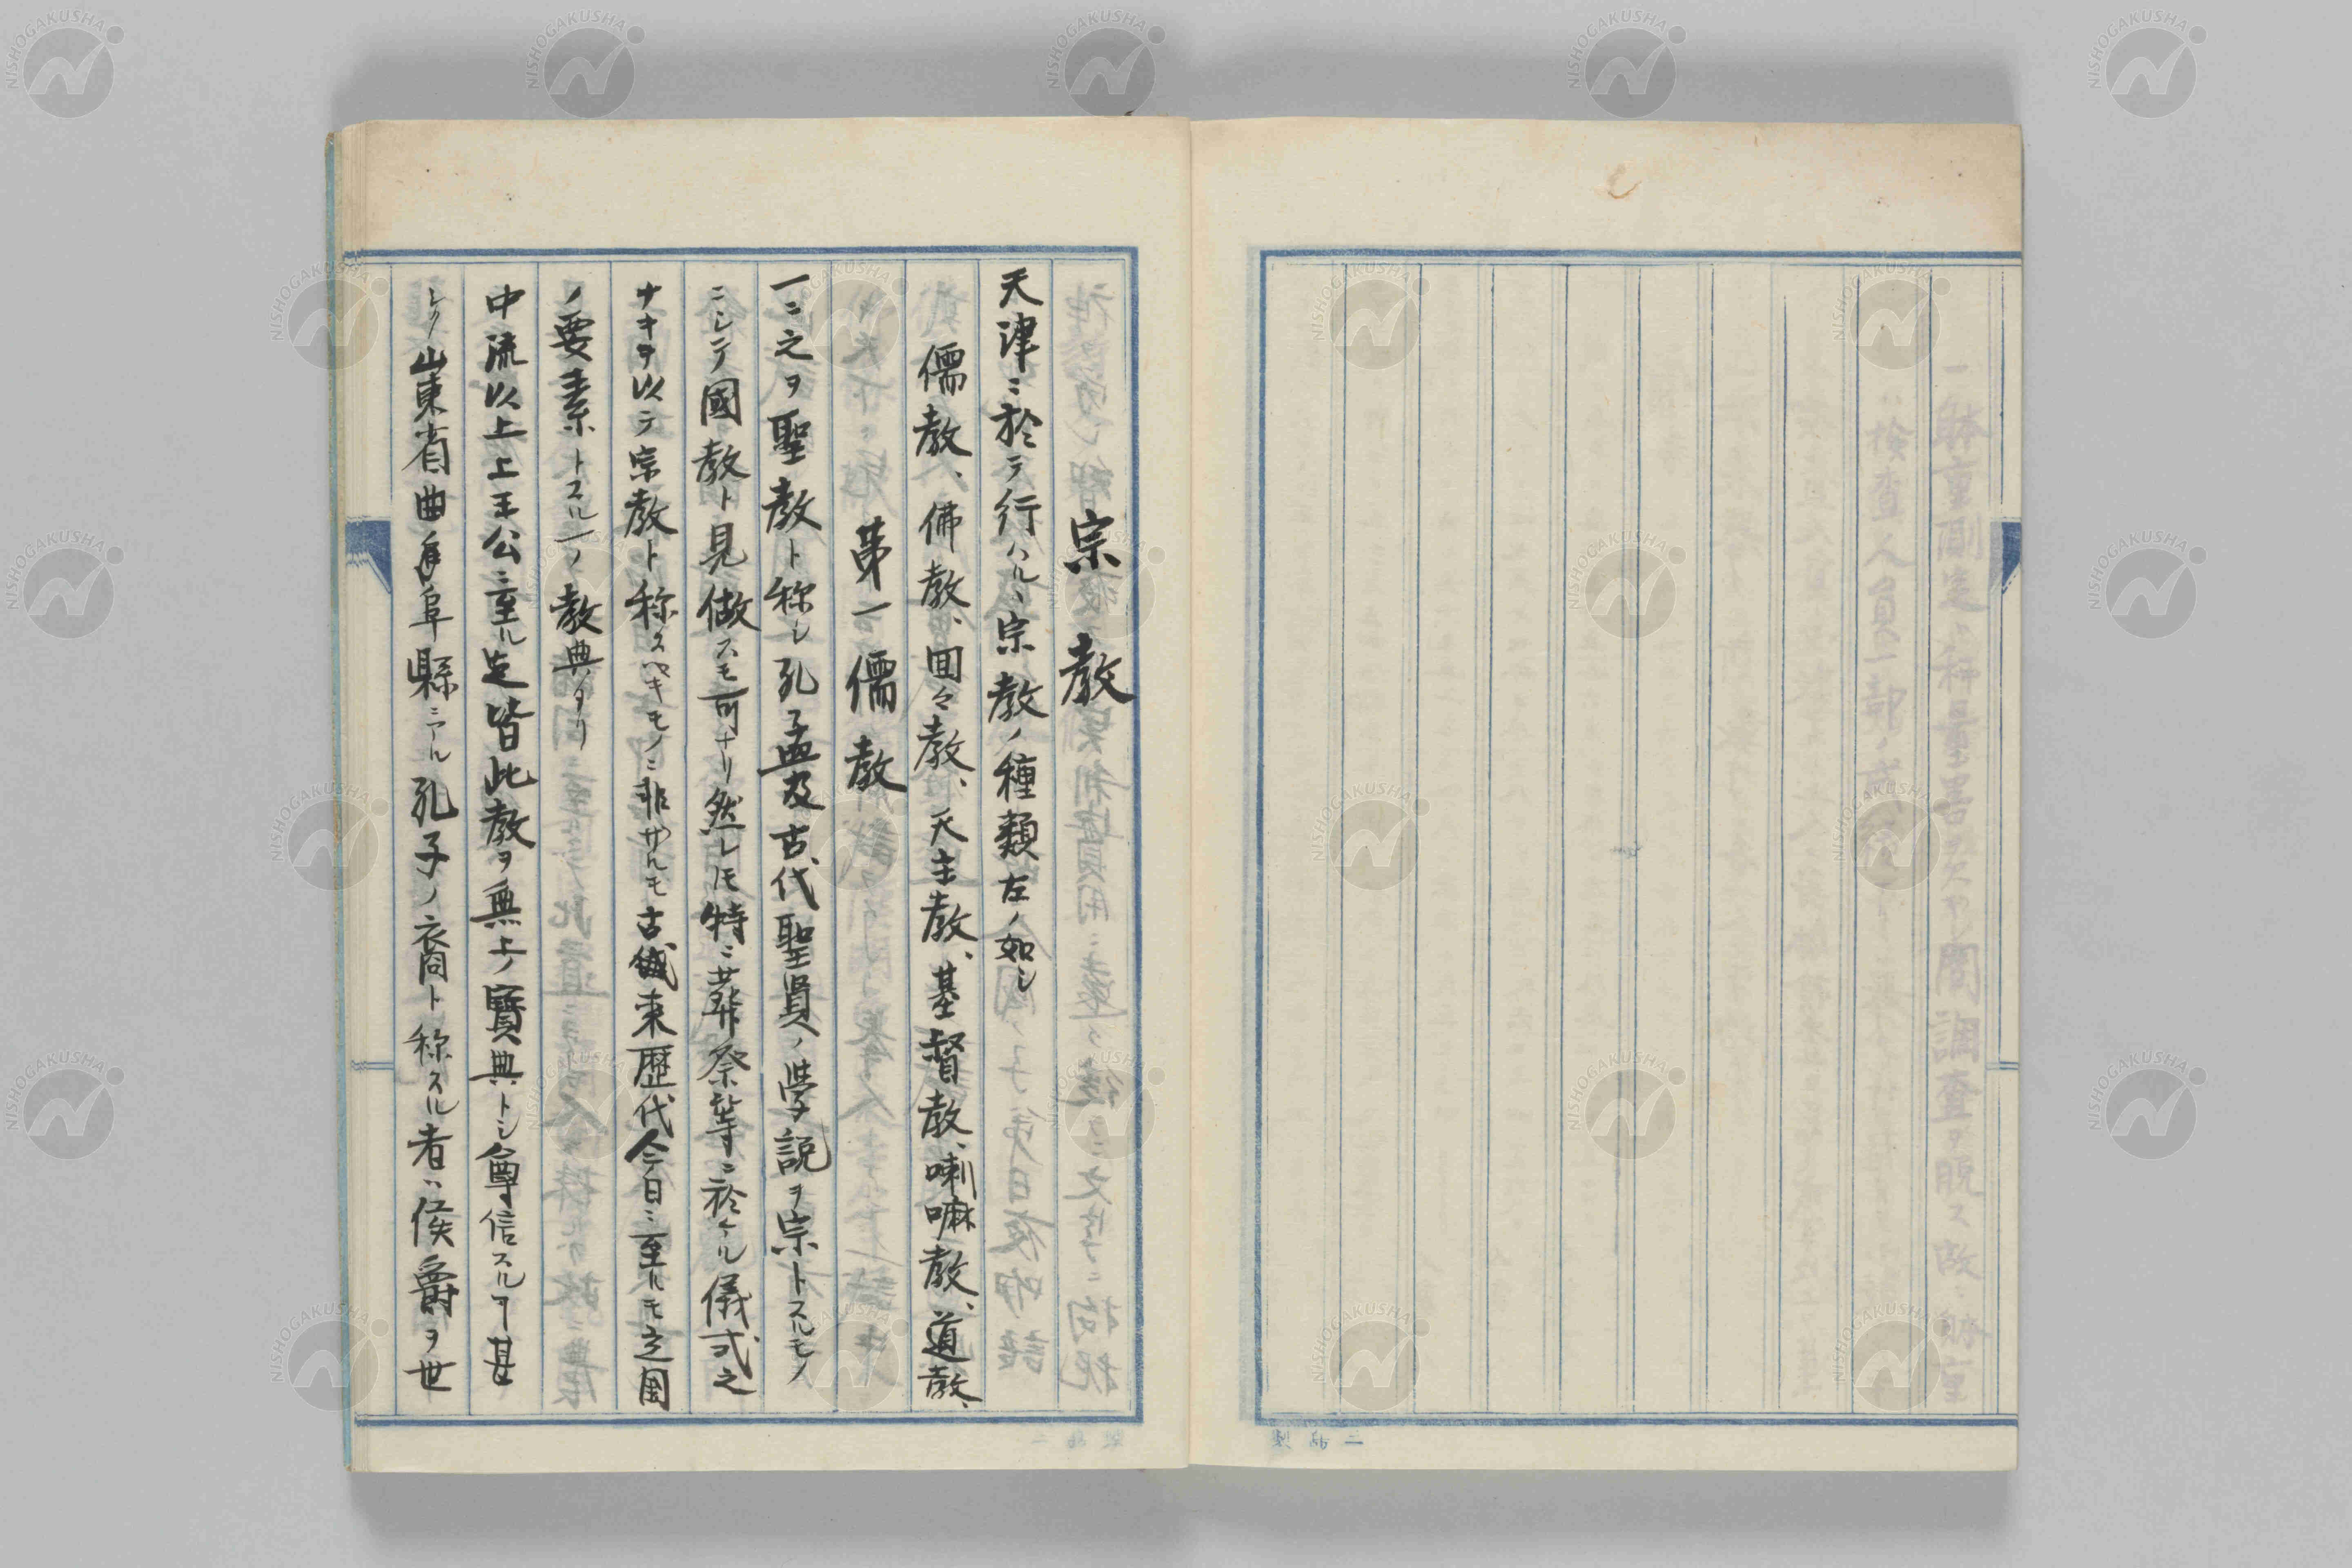 宗教
天津ニ於テ行ハルヽ宗教ノ種類左ノ如シ
儒教、佛教、囬々教、天主教、基督教、喇嘛教、道教、
第一 儒教
一ニ之ヲ聖教ト称シ孔子孟及古代聖賢ノ学説ヲ宗トスルモノ
ニシテ國教ト見做スモ可ナリ然レ𪜈特ニ葬祭等ニ於ケル儀式之
ナキヲ以テ宗教ト称スヘキモノニ非サルモ古来歴代今日ニ至ルモ立国
ノ要素トスルノ教典タリ
中流以上上王公ニ至ル迠皆此教ヲ無上ノ寳典トシ尊信スルヿ甚
シク山東省曲阜縣ニアル孔子ノ裔ト称スル者ハ侯爵ヲ世
NISHOGAKUSHA